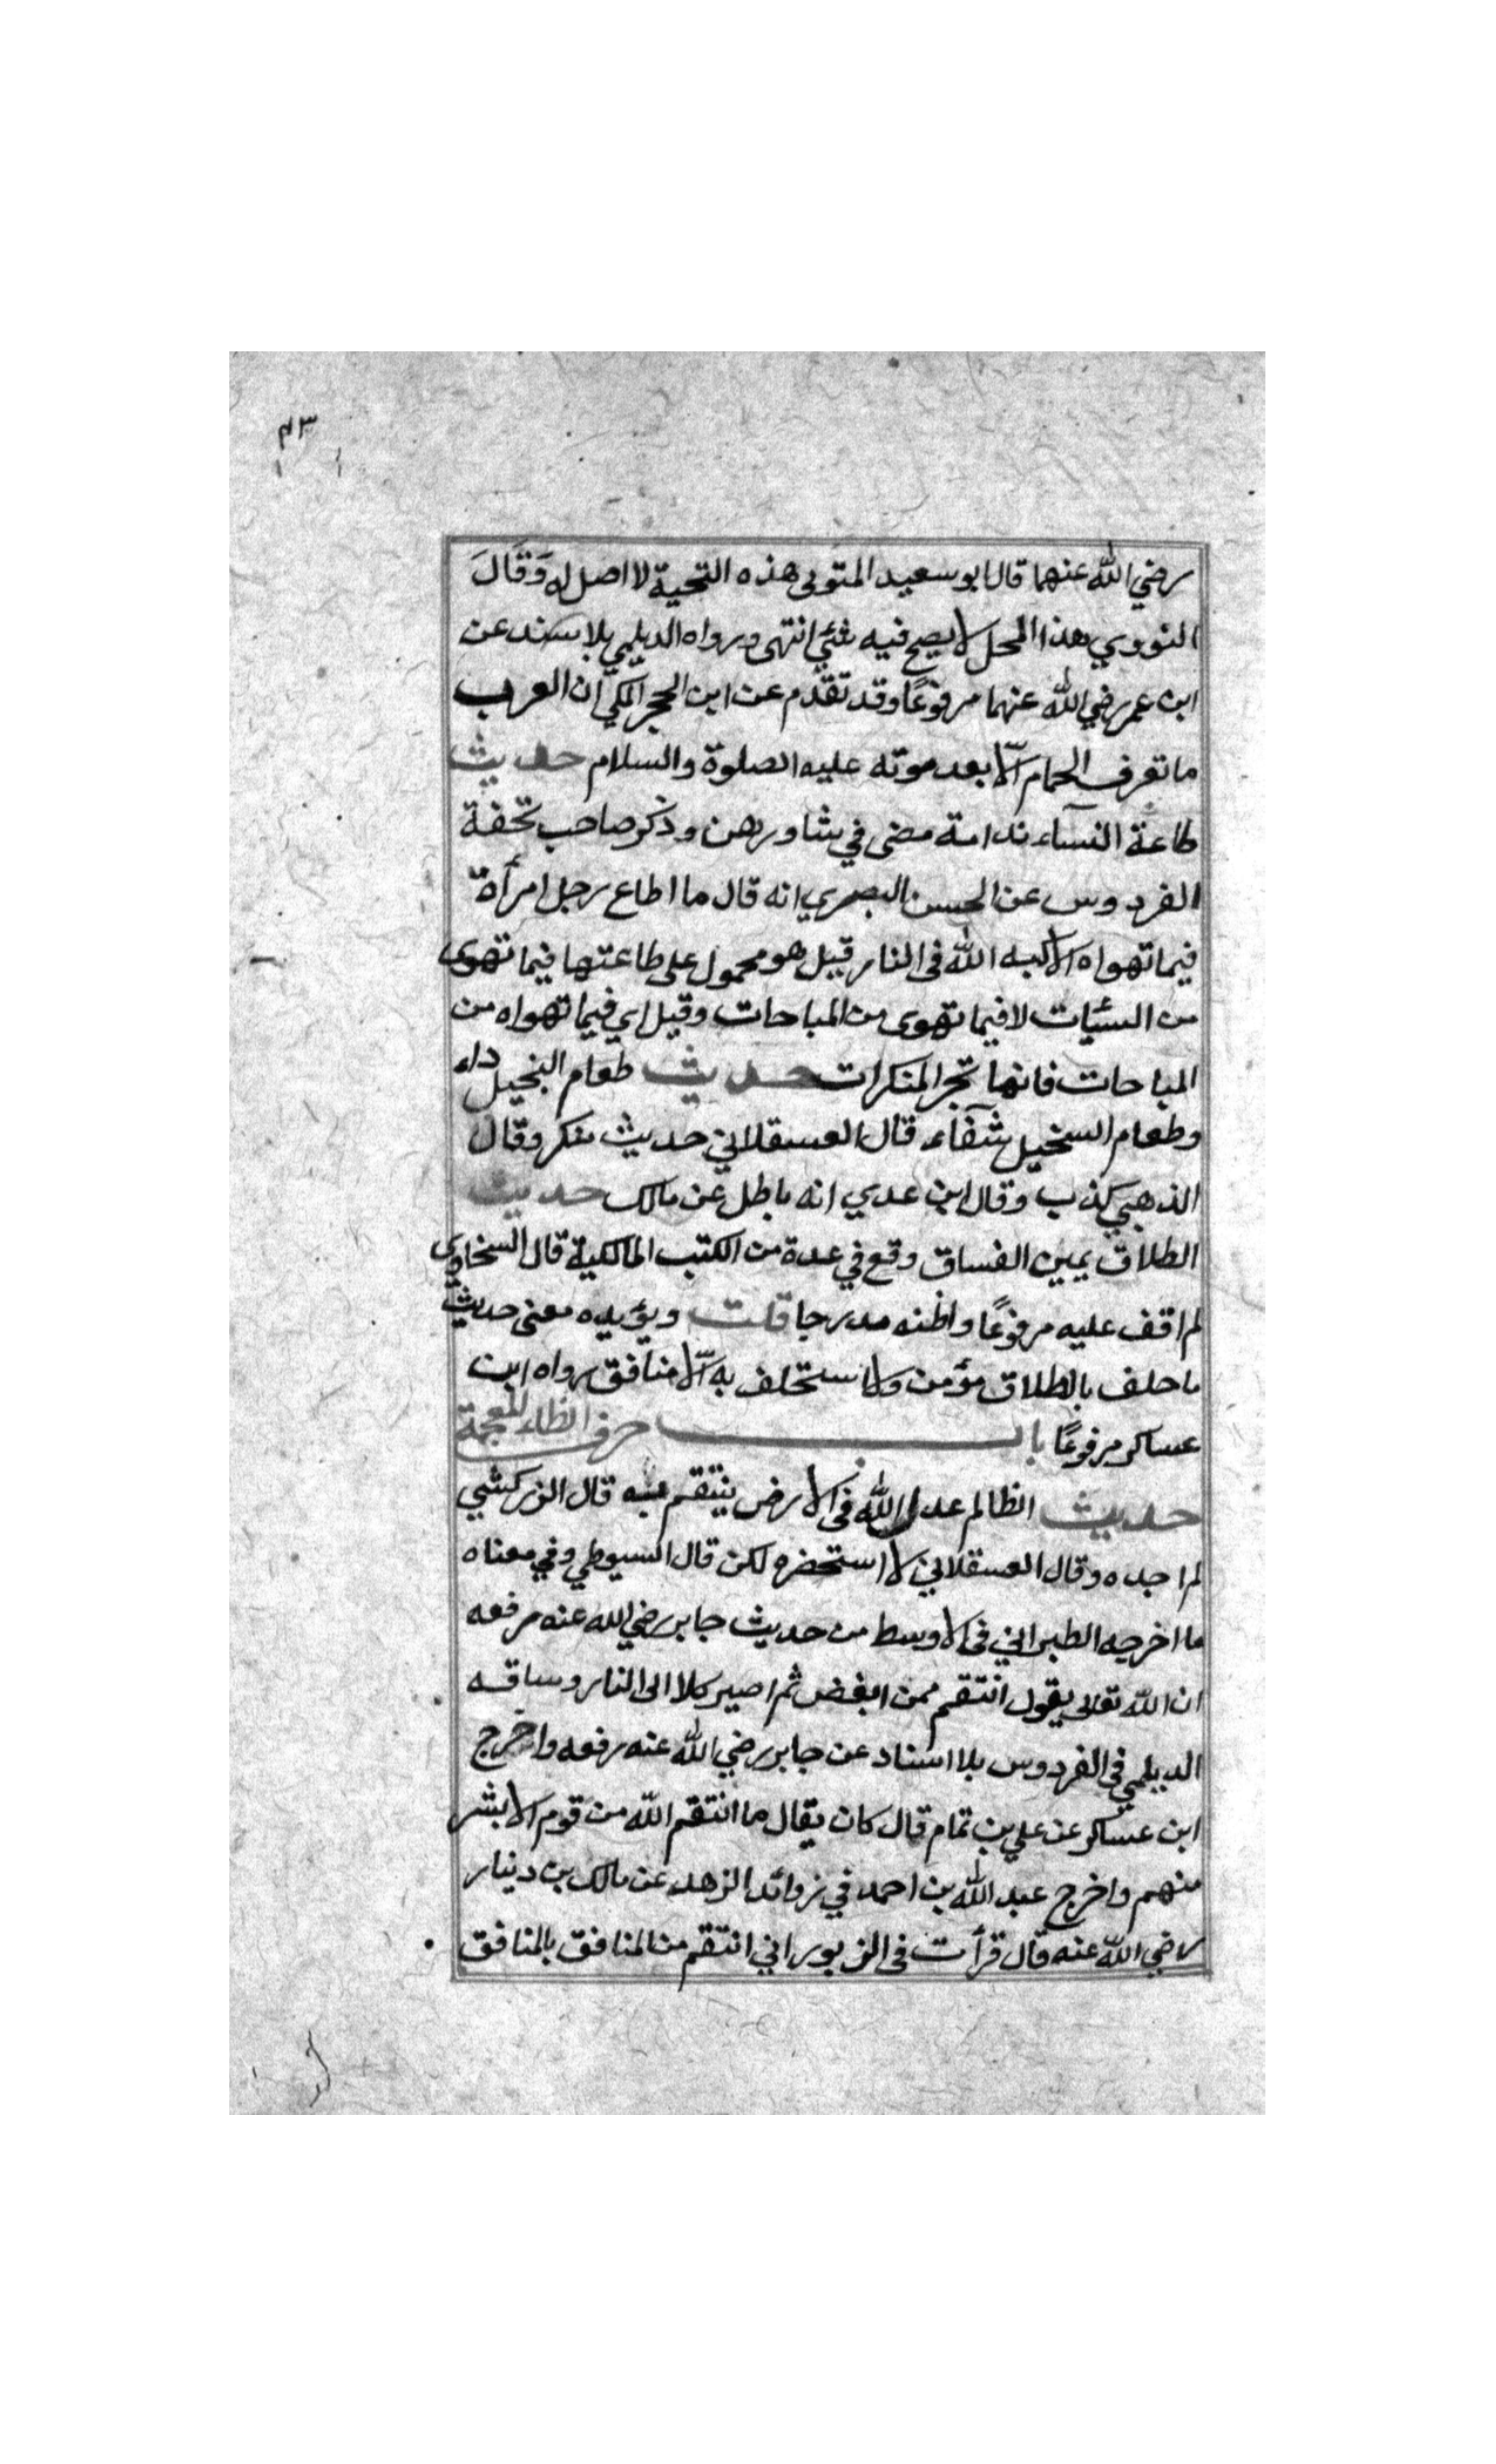 ٤٣
رضي الله عنهما قال ابو سعيد المتولى هذه التحية لا اصل له وَقَالَ
النووي هذا المحل لا يصح فيه شئي انتهى ورواه الديلمي بلا سند عن
ابن عمر رضي الله عنهما مرفوعًا وقد تقدم عن ابن الحجر المكي ان العرب
ما تعرف الحمام الّا بعد موته عليه الصلوة والسلام حديث
طاعة النسآء ندامة مضى في شاورهن وذكر صاحب تحفة
الفردوس عن الحسن البصري انه قال ما اطاع رجل امرأة
فيما تهواه الا كبه الله فى النار قيل هو محمول على طاعتها فيما تهوى
من السئيات لا فيما تهوى من المباحات وقيل اي فيما تهواه من
المباحات فانها تجر المنكرات حديث طعام البخيل داء
وطعام السخيل شفآء قال العسقلاني حديث منكر وقال
الذهبي كذب وقال ابن عدي انه باطل عن مالك حديث
الطلاق يمين الفساق وقع في عدة من الكتب المالكية قال السخاوى
لم اقف عليه مرفوعًا واظنه مدرجا قلت ويؤيده معنى حديث
ما حلف بالطلاق مؤمن ولا استحلف به الّا منافق رواه ابن
عساكر مرفوعًا باب حرف الظاء المعجمة
حديث الظالم عدل الله فى الارض ينتقم به قال الزركشي
لم اجده وقال العسقلاني لا استحضره لكن قال السيوطي وفي معناه
ما اخرجه الطبراني فى الاوسط من حديث جابر رضي الله عنه مرفعه
ان الله تعالى يقول انتقم ممن ابغض ثم اصير كلا الى النار وساقه
الديلمي فى الفردوس بلا اسناد عن جابر رضي الله عنه رفعه واخرج
ابن عساكر عن علي بن تمام قال كان يقال ما انتقم الله من قوم الا بشر
منهم واخرج عبد الله بن احمد في زوائد الزهد عن مالك بن دينار
رضي الله عنه قال قرأت فى الزبور اني انتقم من المنافق بالمنافق